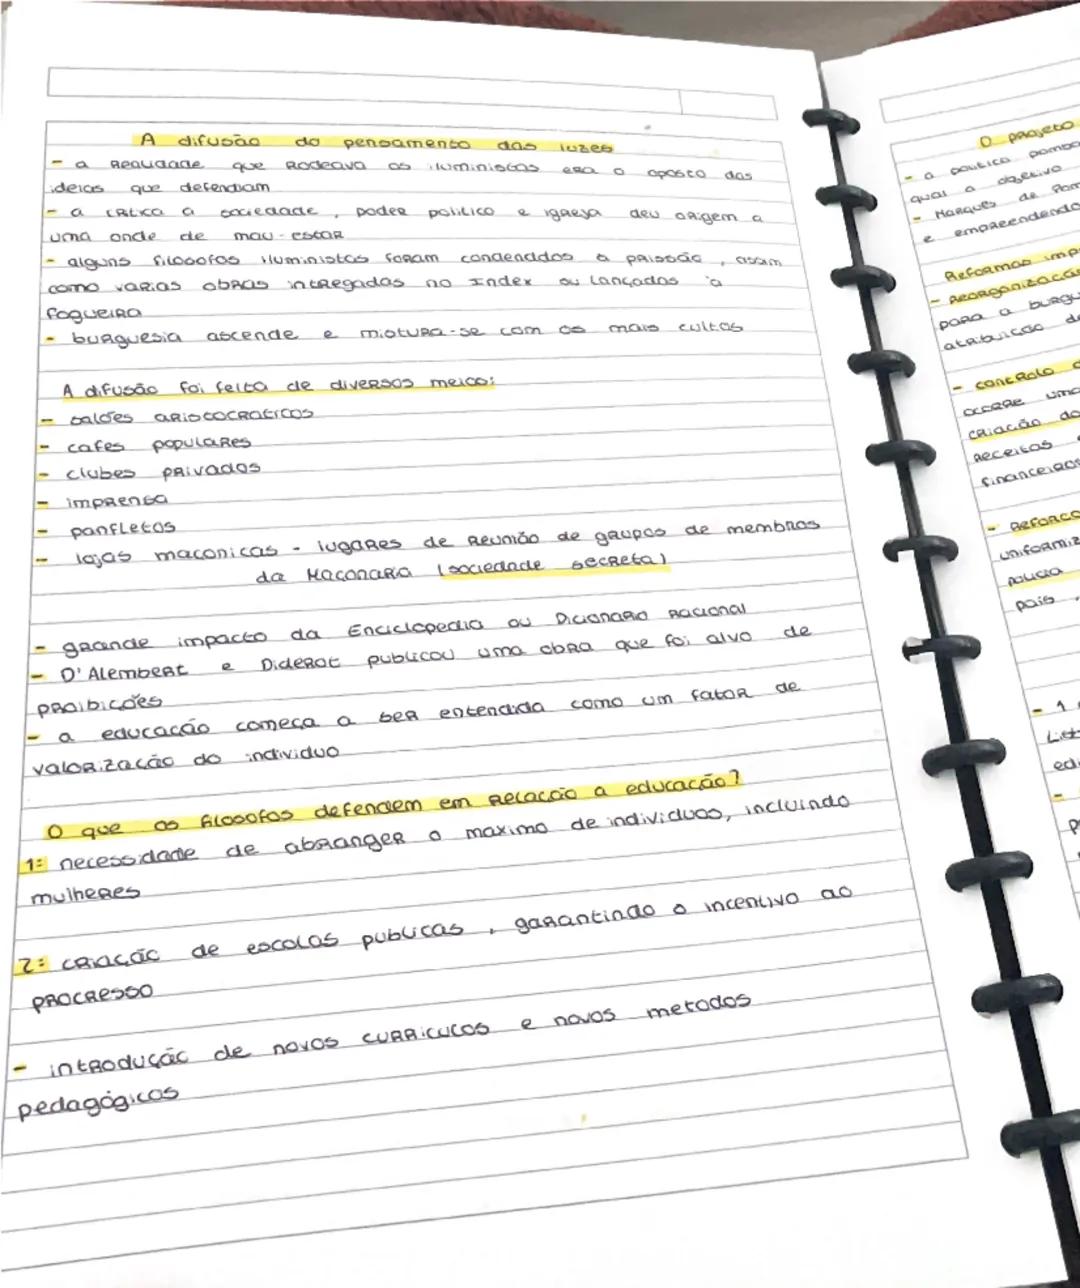 A difusão do pensamento das luzes
- a Realidade que Rodeava os iluministas era o oposto das
ideias que defendiam
- a critica a sociedade, poder politico e igreja deu origem a
uma onde de mau-estar
- alguns filosofos iluministas foram condenaddos a prissão, assim
como varias obras integradas no Index ou Lançadas à
fogueira
- burguesia ascende e mistura-se com os mais cultos
A difusão foi feita de diversos meios:
- salões aristocraticos
- cafes populares
- clubes privados
- imprensa
- panfletos
- lojas maconicas - lugares de Reunião de grupos de membros
da Maçonaria (sociedade secreta)
- grande impacto da Enciclopedia ou Dicionario Racional
- D'Alembert e Diderot publicou uma obra que foi alvo de
proibições
- a educação começa a ser entendida como um fator de
valorização do individuo
O que os filosofos defendem em relação a educação?
1: necessidade de abranger o maximo de individuos, incluindo
mulheres
2: criação de escolas publicas, garantindo o incentivo ao
progresso
- introdução de novos curriculos e novos metodos
pedagógicos
O projeto
- a politica pomba
qual o objetivo
- Marquês de Pom
e empreendendo
Reformas imp
- Reorganização
para a burgu
atribuição de
- controlo
ocorre uma
criação do
receitas
financeiros
- Reforço
uniformiz
policia
pais
- 1
List
edi